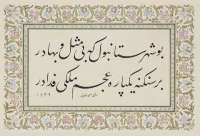 بو شهر ستانبول که بی مثل و بهادر
بر سنگنه یکپاره عجم ملکی فدادر